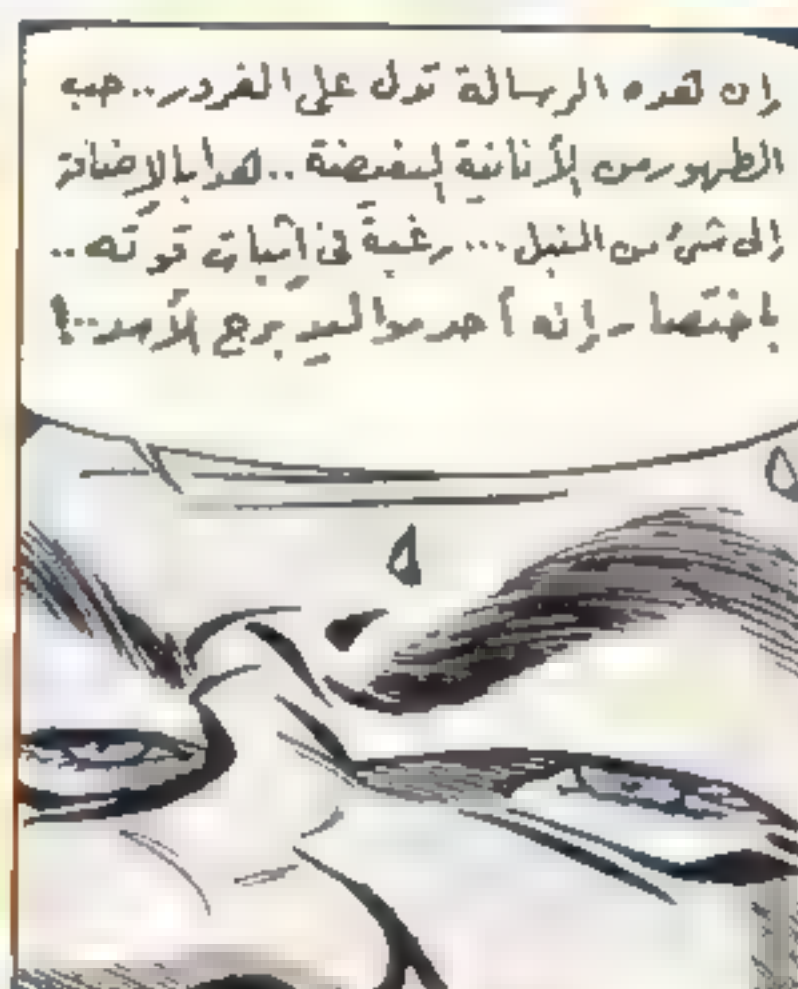 إن هذه الرسالة تدل على الغرور.. حب
الظهور من الأنانية البغيضة.. هذا بالإضافة
إلى شئ من النبل... رغبة في اثبات قوته..
باختصار إنه أحد مواليد برج الأسد..!